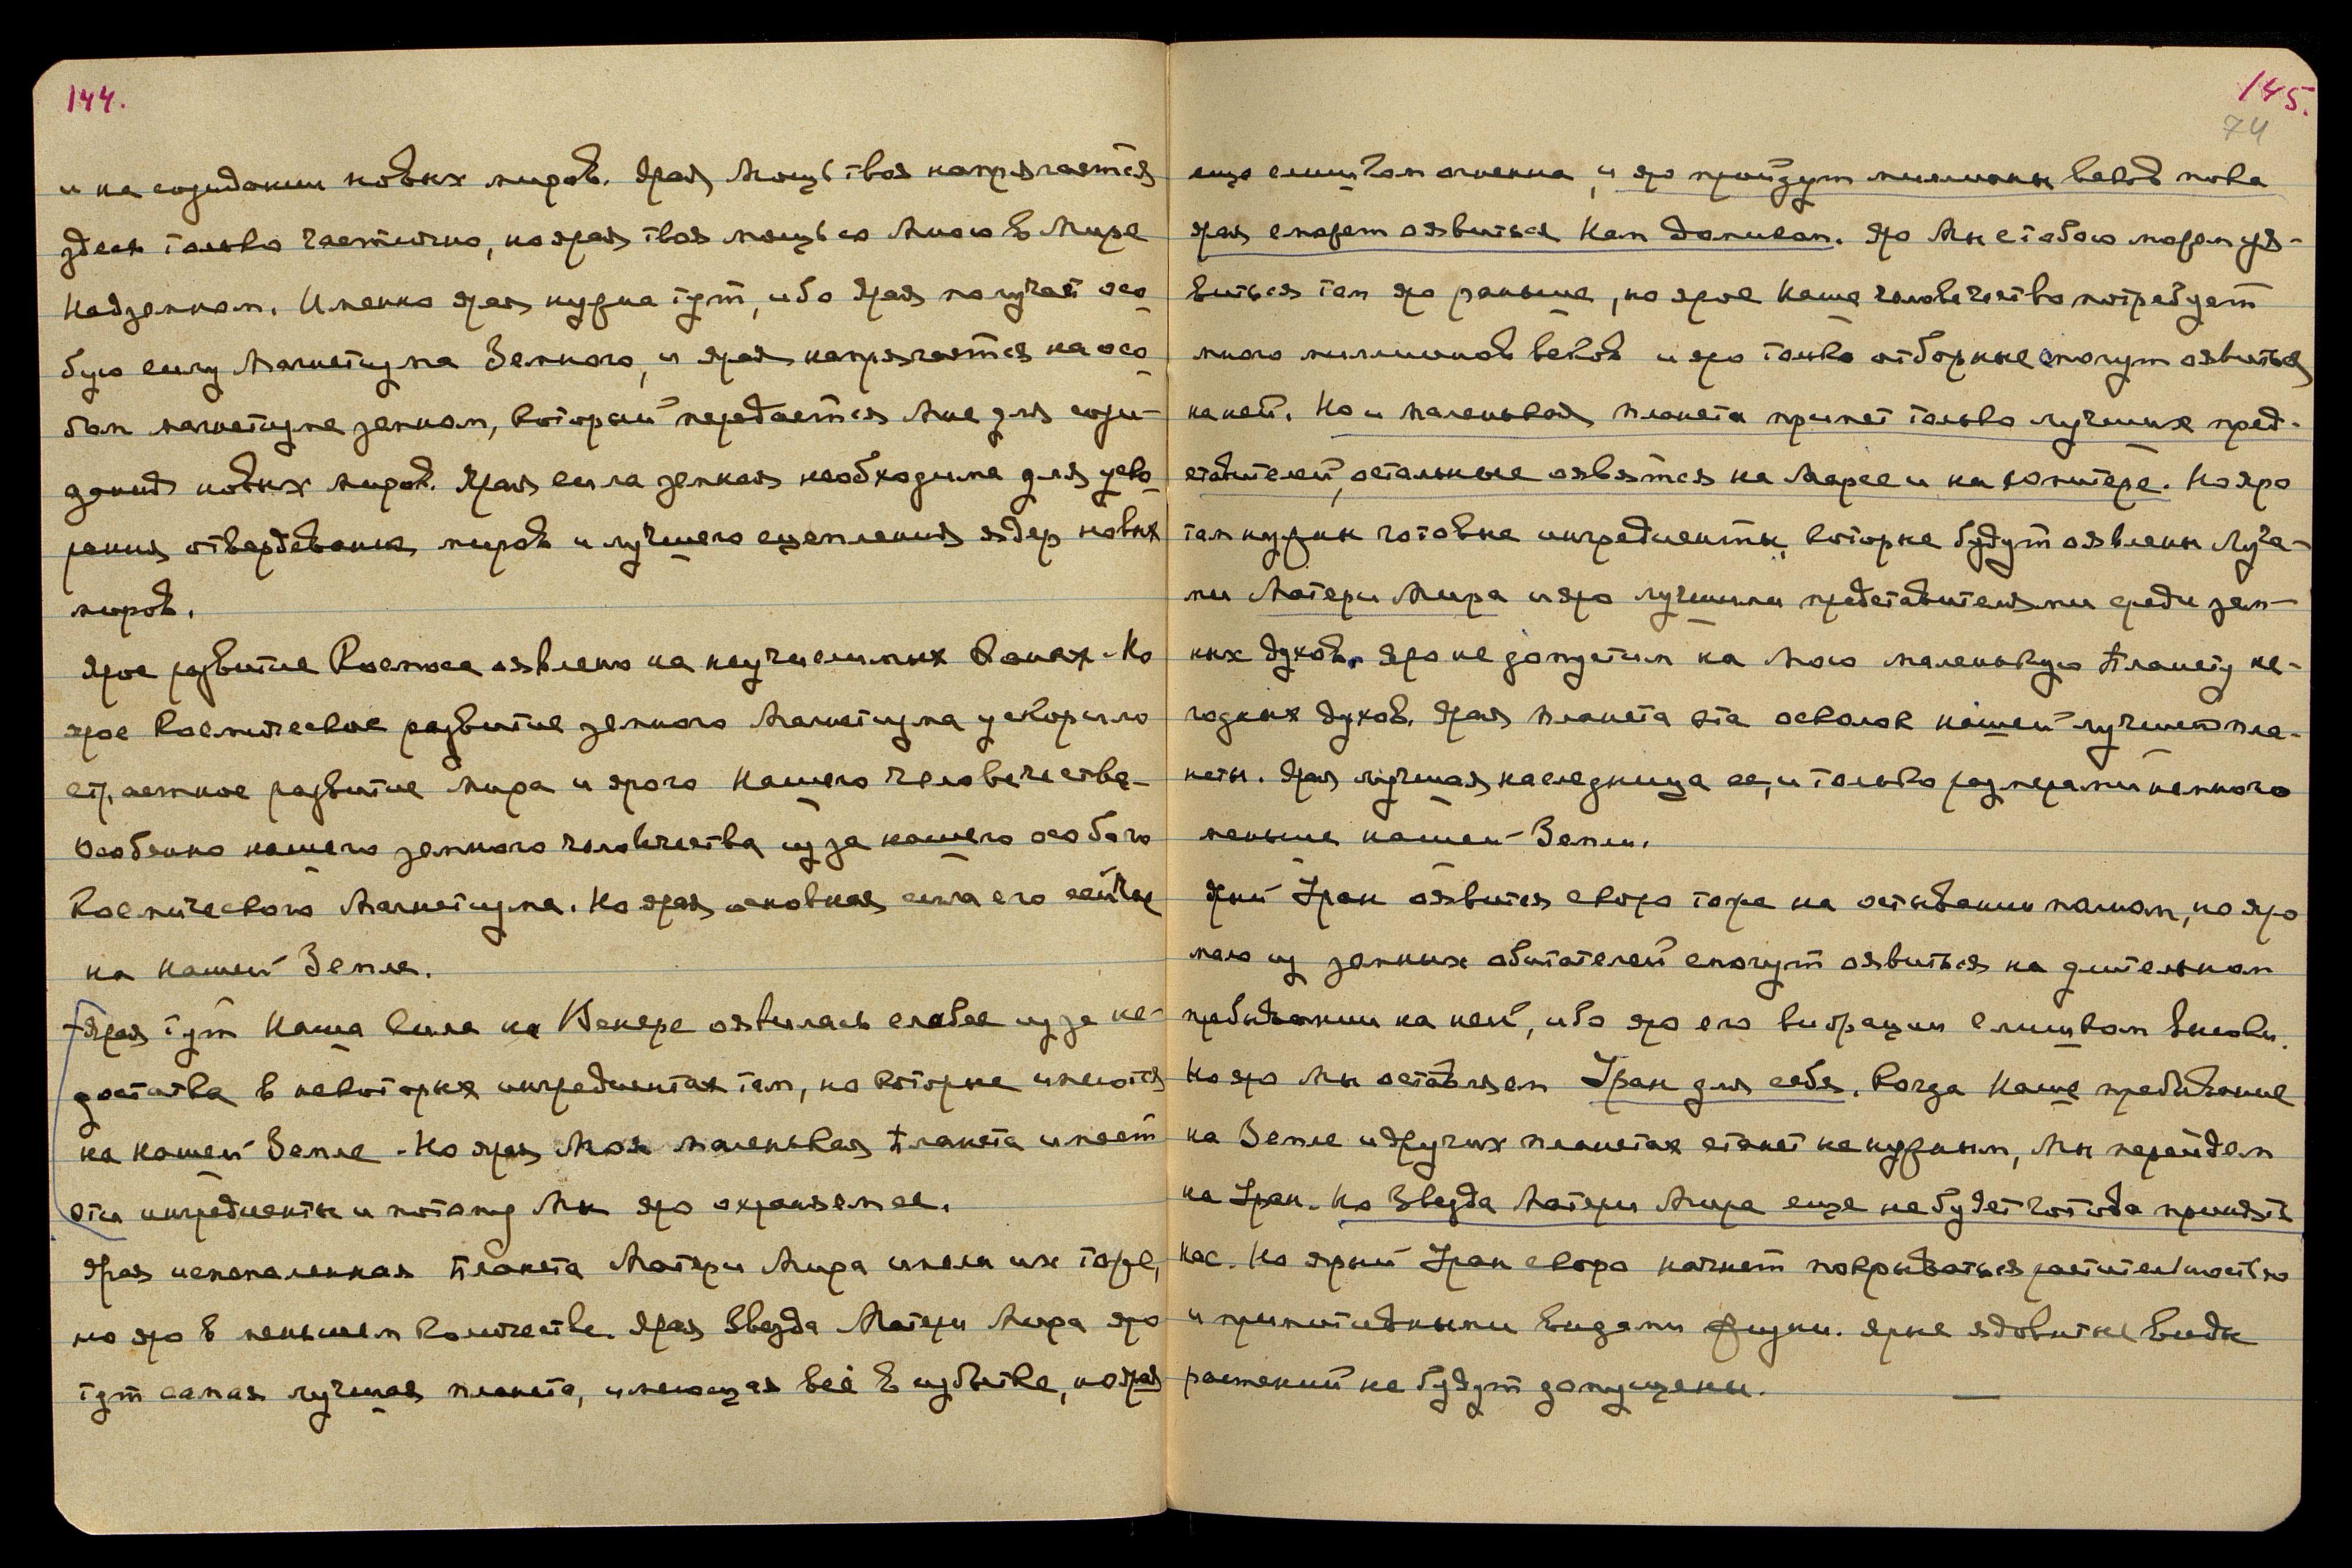 144.
и на созидании новых миров. Ярая Мощь твоя напрягается
здесь только частично, но ярая твоя мощь со Мною в Мире
Надземном. Именно ярая нужна тут, ибо Ярая получает осо
бую силу Магнетизма Земного, и ярая напрягается на осо
бом магнетизме земном, который передается Мне для сози-
дания новых миров. Ярая сила земная необходима для уско
рения отвердевания миров и лучшего сцепления ядер новых
миров.
Ярое развитие Космоса оявлено на неучислимых Эонах. Но
ярое Космическое развитие земного Магнетизма ускорило
страстное развитие Мира и ярого Нашего человечества.
Особенно нашего земного человечества из за нашего особого
Космического Магнетизма. Но ярая основная сила его сейчас
на нашей Земле.
Ярая тут Наша сила на Венере оявилась слабее из за не-
достатка в некоторых ингредиентах там, но которые имеются
на нашей Земле. Но ярая Моя маленькая планета имеет
эти ингредиенты и потому Мы яро охраняем ее.
Ярая испепеленная планета Матери Мира имела их тоже,
но яро в меньшем количестве. Ярая Звезда Матери Мира яро
тут самая лучшая планета, имеющая всё в избытке, но ярая
145.
74
еще слишком огненна, и яро пройдут миллионы веков пока
ярая сможет оявиться Нам домиком. Яро Мы с тобою можем уя-
виться там яро раньше, но ярое Наше человечество потребует
много миллионов веков и яро только отборные смогут оявиться
на ней. Но и маленькая планета примет только лучших пред-
ставителей, остальные оявятся на Марсе и на Юпитере. Но яро
там нужны готовые ингредиенты, которые будут оявлены Луча-
ми Матери Мира и яро лучшими представителями среди зем-
ных духов. Яро не допустим на Мою маленькую планету не-
годных духов. Ярая планета эта осколок нашей лучшей пла-
неты. Ярая лучшая наследница ее, и только размерами немного
меньше нашей Земли.
Ярый Уран оявится скоро тоже на остывании полном, но яро
мало из земных обитателей смогут оявиться на длительном
пребывании на ней, ибо яро его вибрации слишком высоки.
Но яро Мы оставляем Уран для себя. Когда Наше пребывание
на Земле и других планетах станет ненужным, Мы перейдем
на Уран. Но Звезда Матери Мира еще не будет готова принять
Нас. Но ярый Уран скоро начнет покрываться растительностью
и примитивными видами физики. Ярые ядовитые виды
растений не будут допущены.